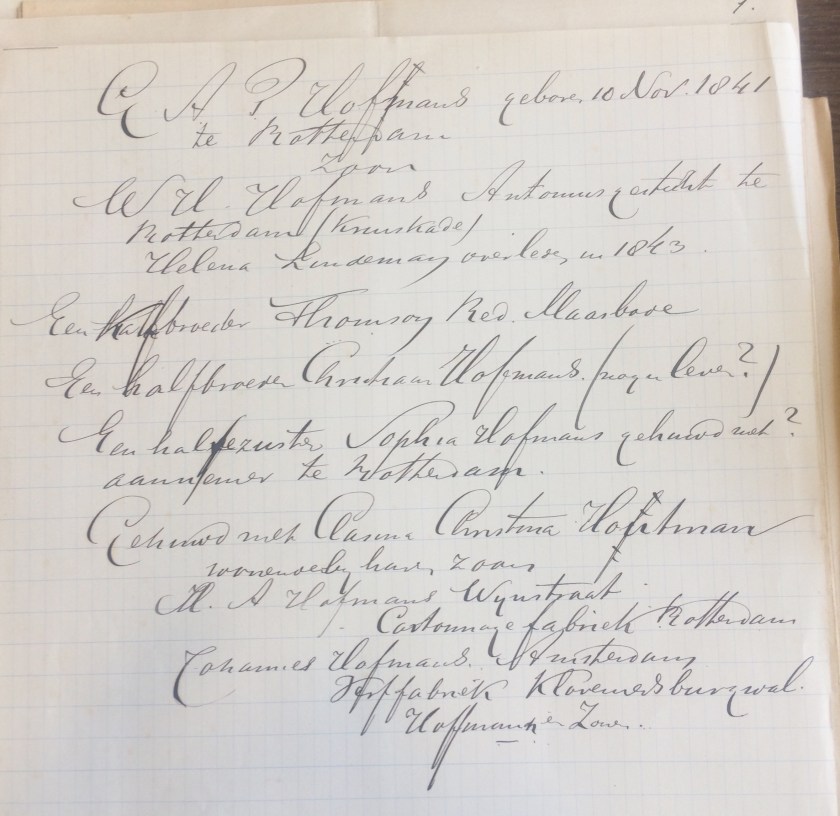 G A P Hoffmans geboren 10 Nov. 1841
te Rotterdam
Zoon
W H. Hofmans Antonius gesticht te
Rotterdam (Kruiskade)
Helena Lindeman overleden in 1843.
Een halfbroeder Thomson Red. Maasbode
Een halfbroeder Christiaan Hofmans. (nog in leven?)
Een halfezuster Sophia Hofmans gehuwd met ?
aannemer te Rotterdam.
Gehuwd met Clasina Christina Hoffman
wonende bij haren zoon
M. A Hofmans Wijnstraat
Cartonnage fabriek Rotterdam
Johannes Hofmans. Amsterdam
Verffabriek Kloveniersburgwal.
Hoffmann en Zonen.